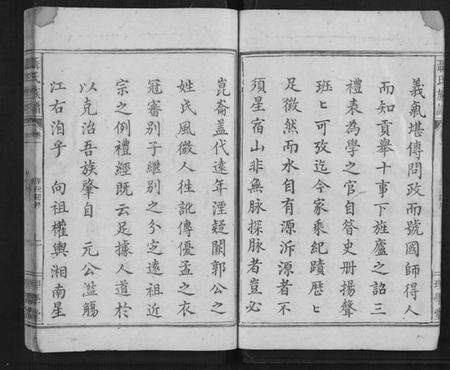 義氣堪傳問政而號國師得人
而知貢舉十事下旌廬之詔三
禮表為學之官自昔史册揚聲
班匕可孜迄今家乘紀蹟歷匕
足徵然而水自有源泝源者不
須星宿山非無脉探脉者豈必
崑崙蓋代遠年湮疑闕郭公之
姓氏風微人往訛傳優孟之衣
冠審别子繼别之分定遠祖近
宗之例禮經既云足據人道於
以克治吾族肇自　元公濫觴
江右洎乎　向祖權輿湘南星